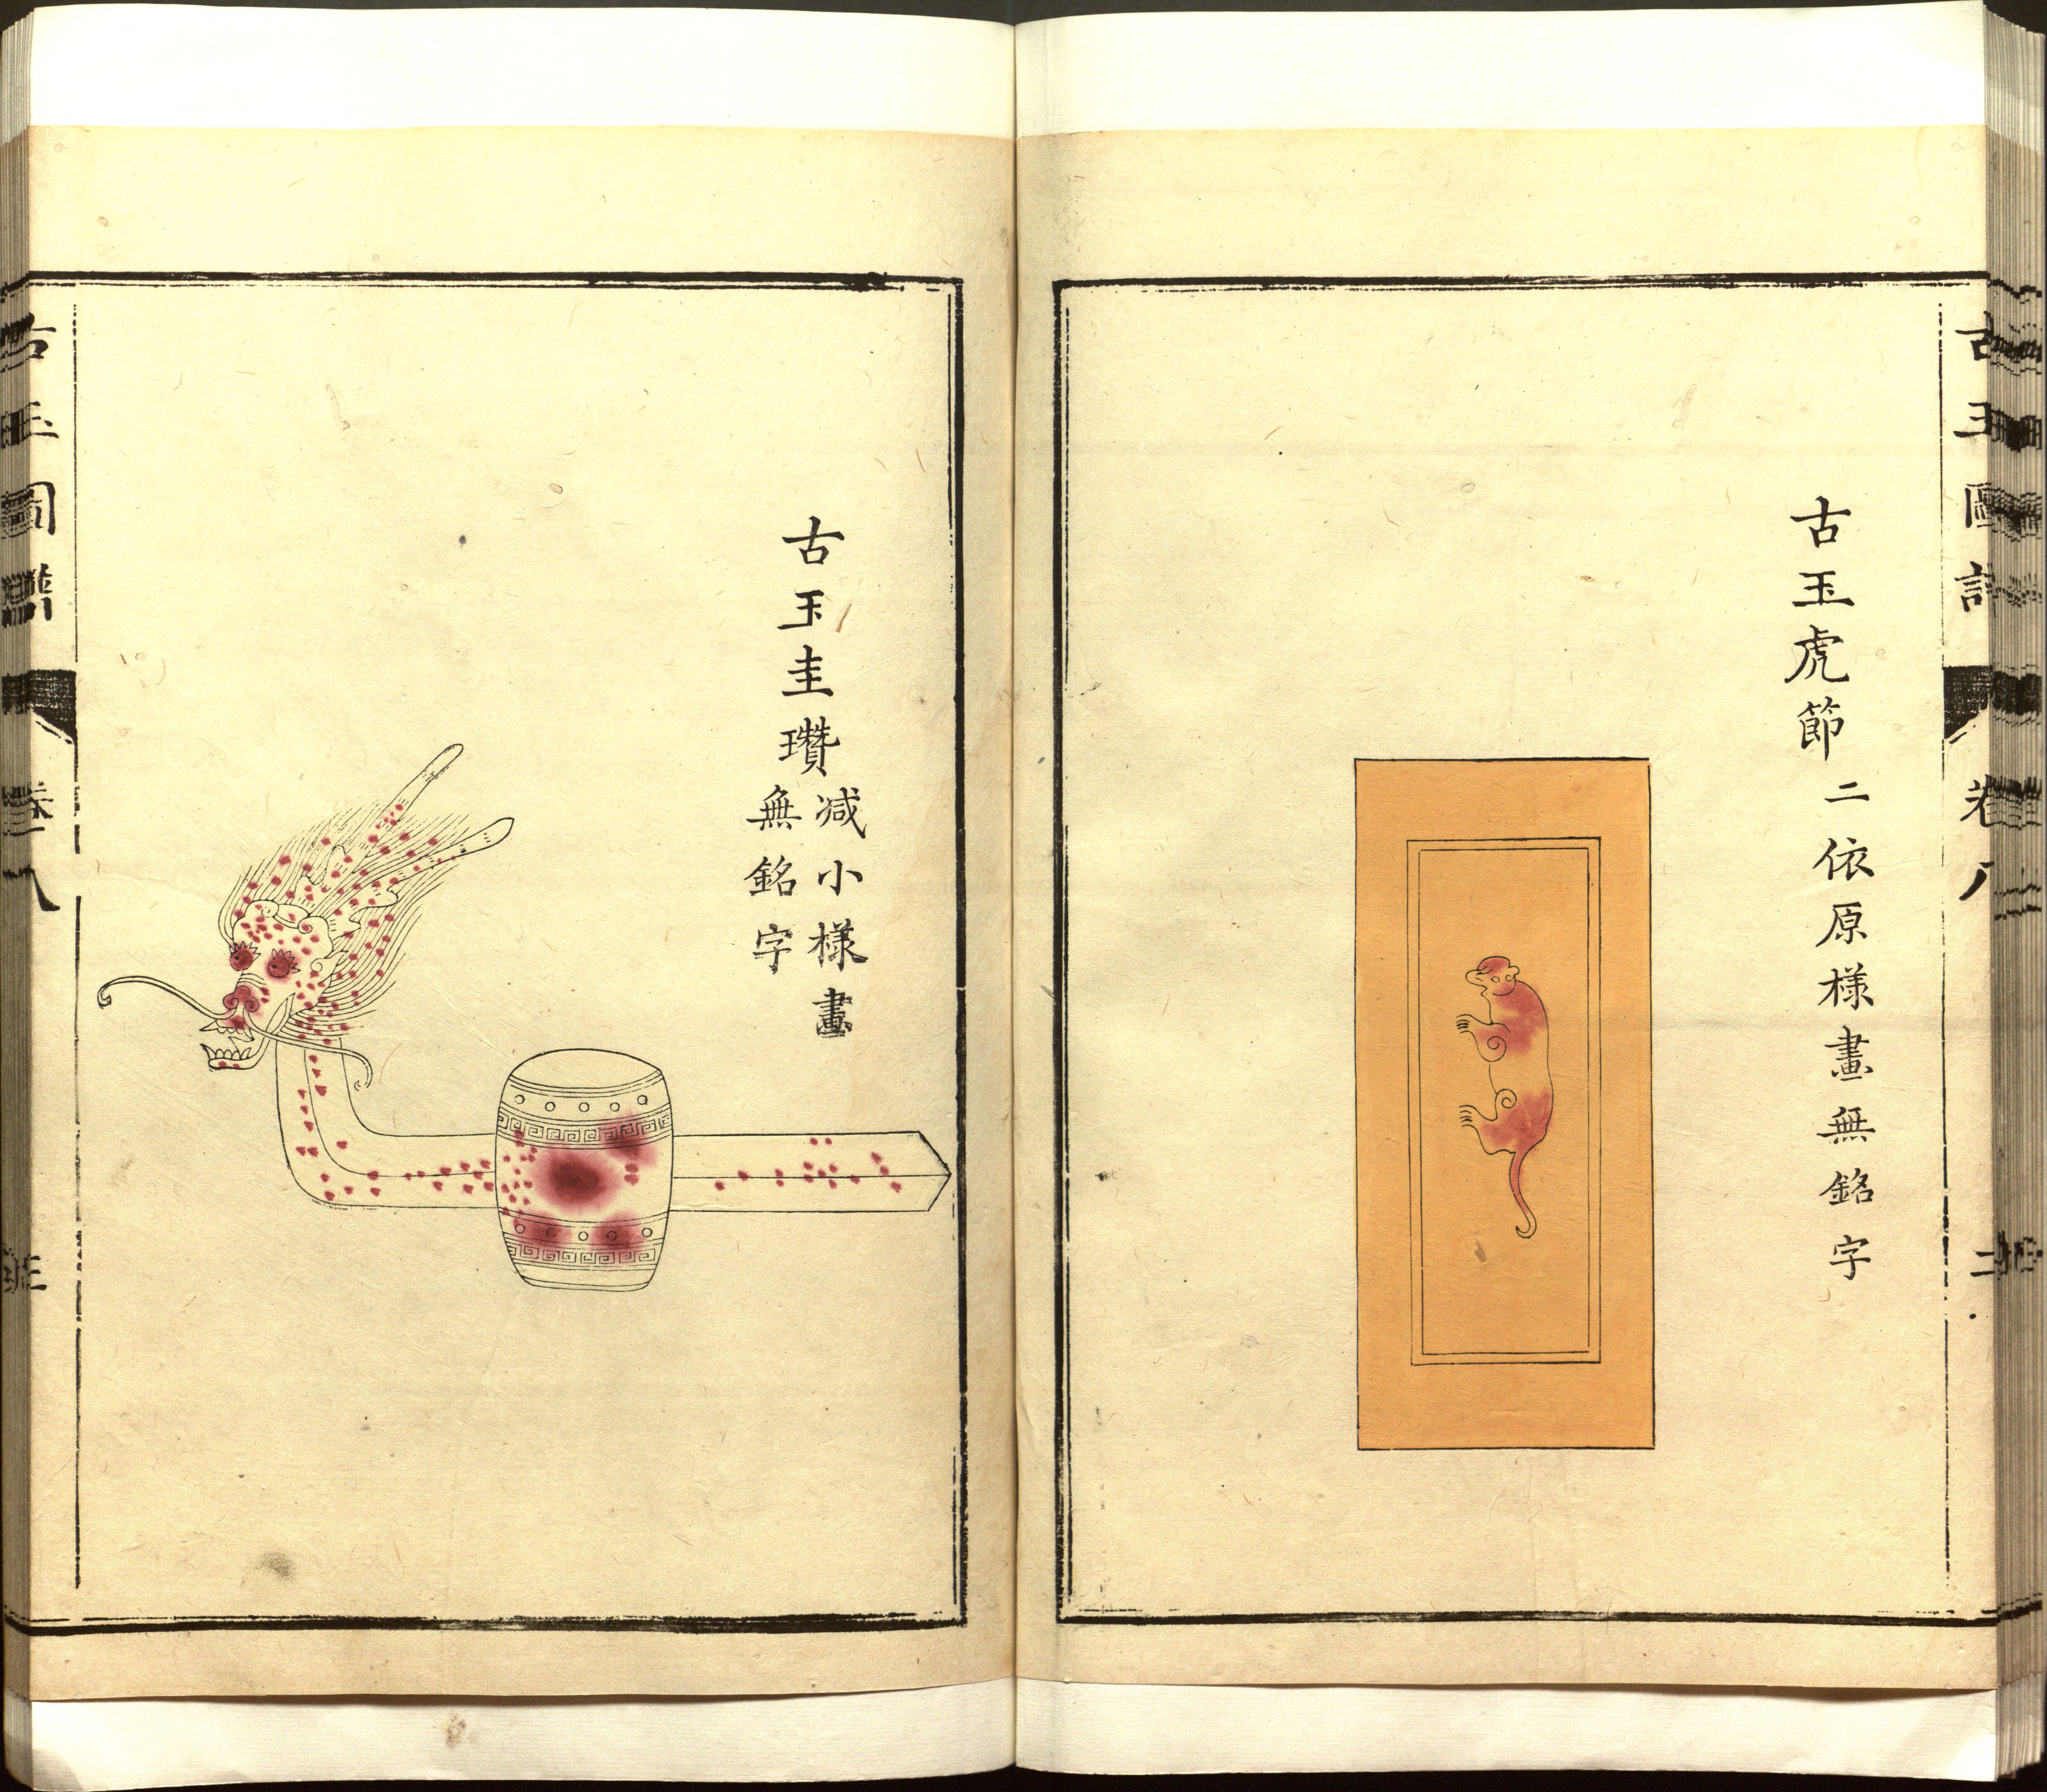 古玉圖譜 卷八 二
古玉虎節二依原樣畫無銘字
古玉圭瓚減小樣畫
無銘字
古玉圖譜 卷八 三